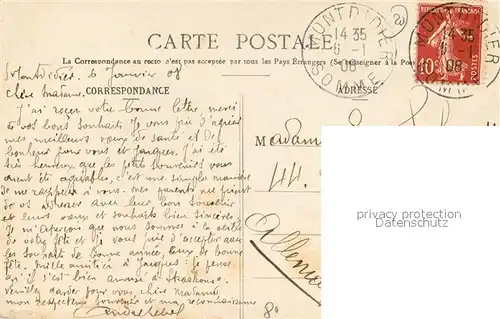 CARTE POSTALE
La Correspondance au recto n'est pas acceptée par tous les Pays Étrangers (Se renseigner à la Poste)
CORRESPONDANCE
ADRESSE
MONTDIDIER
14 35
6 - 1
08
SOMME
MONTDIDIER
14 35
6 - 1
08
RÉPUBLIQUE FRANÇAISE
10
POSTES
2
Montdidier 6 Janvier 08
Chère Madame,
J'ai reçu votre bonne lettre, merci
de vos bons souhaits. Je vous prie d'agréer
mes meilleurs vœux de santé et de
bonheur pour vous et Jacques. J'ai été
très heureux que les petits souvenirs vous
aient été agréables, c'est une simple manière
de me rappeler à vous. Mes parents me prient
de vous adresser avec leur bon souvenir
et leurs vœux et souhaits bien sincères.
Je m'aperçois que nous sommes à la veille
de votre fête et je vous prie d'accepter avec
les souhaits de bonne année, ceux de bonne
fête. Mille amitiés à Jacques; je pense
qu'il s'est bien amusé à Strasbourg.
Veuillez garder pour vous, chère Madame
mon respectueux souvenir et ma reconnaissance
Madam
44.
Allema
80
privacy protection
(Card-Nr. removed)